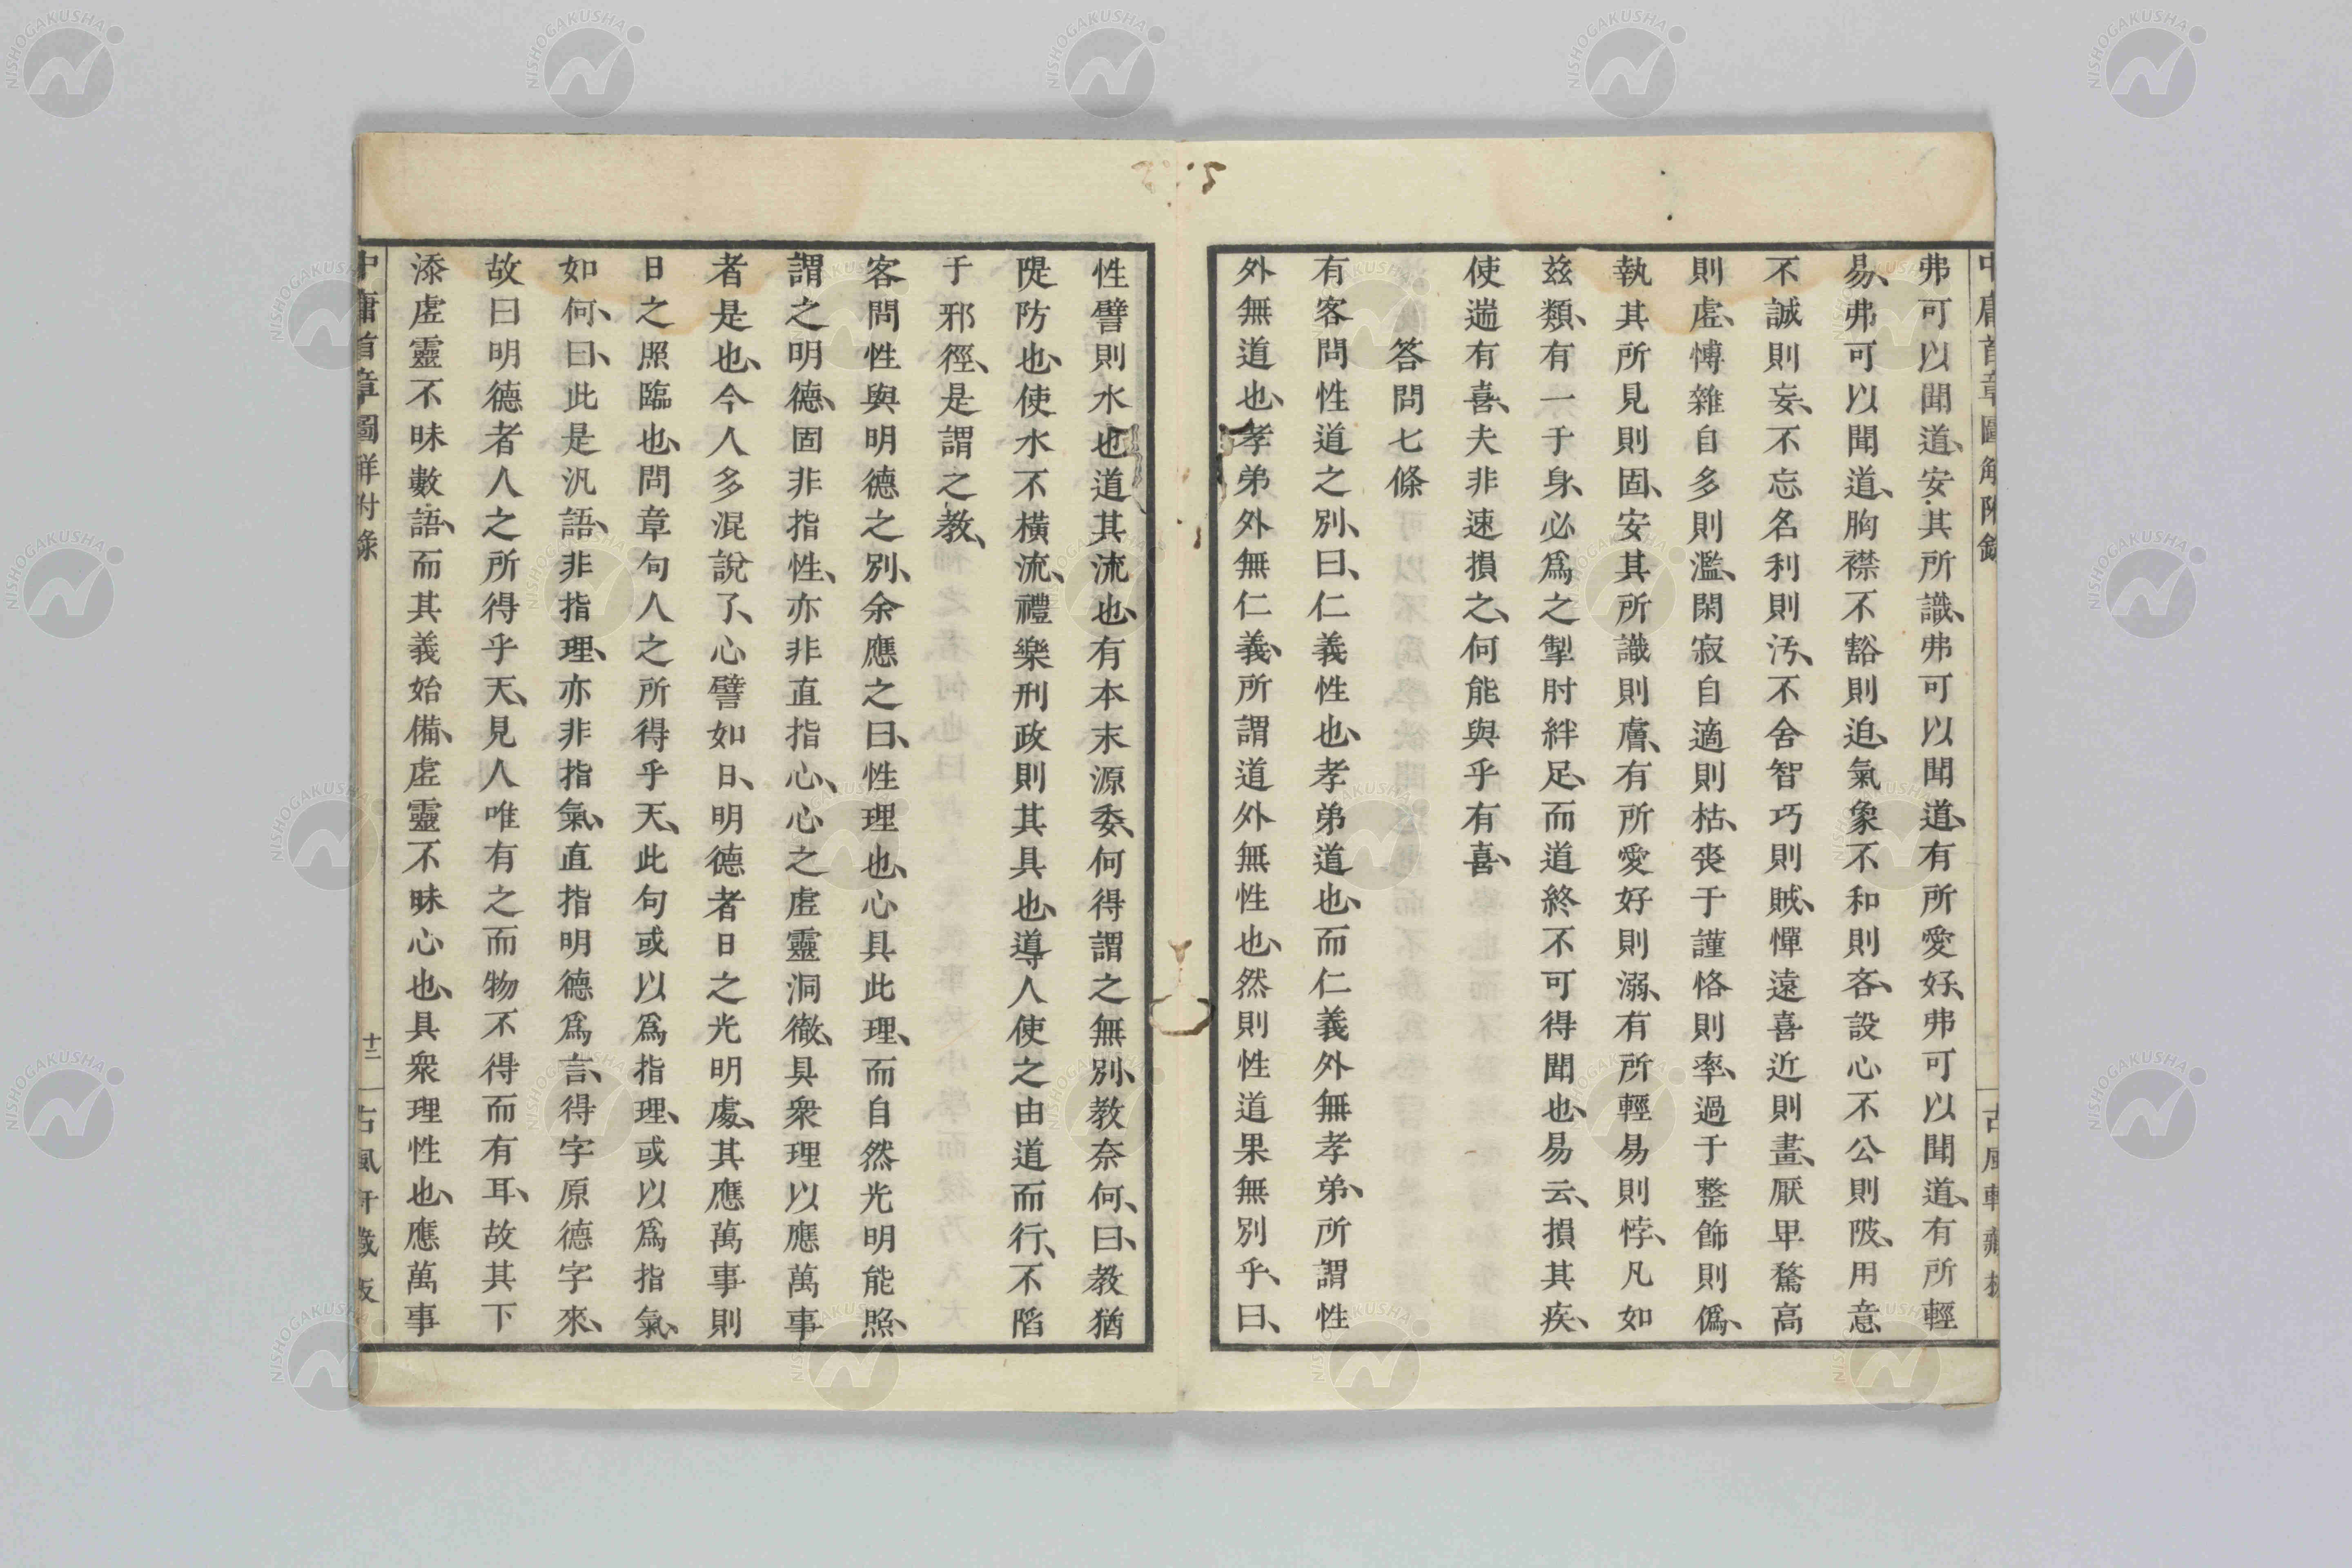 中庸首章圖解附錄
古風軒藏板
弗可以聞道、安其所識、弗可以聞道、有所愛好、弗可以聞道、有所輕
易、弗可以聞道、胸襟不豁則迫、氣象不和則吝、設心不公則陂、用意
不誠則妄、不忘名利則汚、不舍智巧則賊、憚遠喜近則畫、厭卑騖高
則虛、愽雜自多則濫、閑寂自適則枯、喪于謹恪則率、過于整飾則僞、
執其所見則固、安其所識則膚、有所愛好則溺、有所輕易則悖、凡如
兹類、有一于身、必爲之掣肘絆足、而道終不可得聞也、易云、損其疾、
使遄有喜、夫非速損之、何能與乎有喜、
答問七條
有客問性道之別、曰、仁義性也、孝弟道也、而仁義外無孝弟、所謂性
外無道也、孝弟外無仁義、所謂道外無性也、然則性道果無別乎、曰、
性譬則水也道其流也、有本末源委、何得謂之無別、教奈何、曰、教猶
隄防也、使水不橫流、禮樂刑政則其具也、導人使之由道而行、不陷
于邪徑、是謂之教、
客問性與明德之別、余應之曰、性理也、心具此理、而自然光明能照、
謂之明德、固非指性、亦非直指心、心之虛靈洞徹、具衆理以應萬事
者是也、今人多混說了、心譬如日、明德者日之光明處、其應萬事則
日之照臨也、問章句人之所得乎天、此句或以爲指理、或以爲指氣、
如何、曰、此是汎語、非指理、亦非指氣、直指明德爲言、得字原德字來、
故曰明德者人之所得乎天、見人唯有之而物不得而有耳、故其下
添虛靈不昧數語、而其義始備、虛靈不昧心也、具衆理性也、應萬事
中庸首章圖解附錄
十二
古風軒藏板
NISHOGAKUSHA